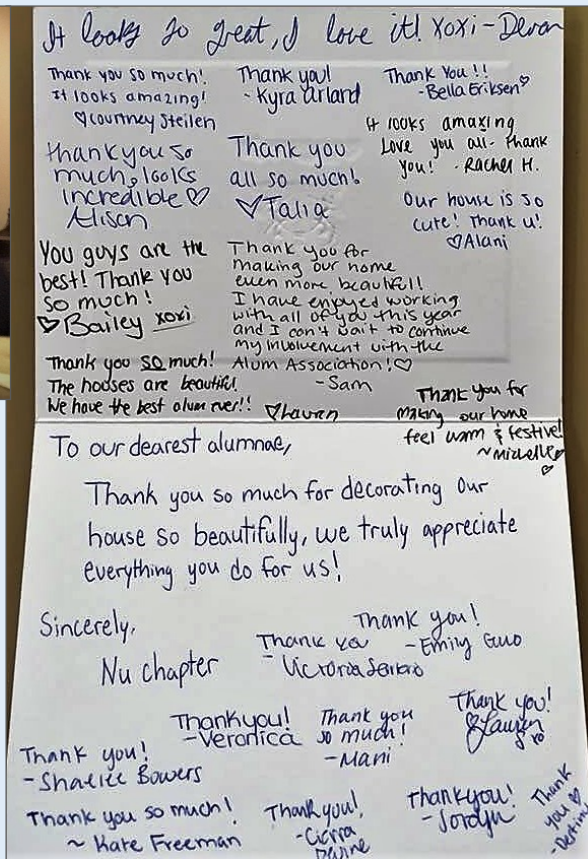 It looks so great, I love it! xoxi - Devon
Thank you so much!
It looks amazing!
♡Courtney Steilen
Thank you!
- Kyra Arland
Thank You!!
- Bella Eriksen♡
It looks amazing
Love you all - Thank
you! - Rachel H.
thank you so
much, looks
incredible ♡
Alison
Thank you
all so much!
♡Talia
Our house is so
cute! Thank u!
♡Alani
You guys are the
best! Thank you
so much!
♡Bailey xoxi
Thank you for
making our home
even more beautiful!
I have enjoyed working
with all of you this year
and I can't wait to continue
my involvement with the
Alum Association!♡
- Sam
Thank you SO much!
The houses are beautiful.
We have the best alum ever!!
♡Lauren
Thank you for
making our home
feel warm & festive!
~Michelle♡
♡
To our dearest alumnae,
Thank you so much for decorating our
house so beautifully, we truly appreciate
everything you do for us!
Sincerely,
Nu chapter
Thank you!
- Emily Guo
Thank you
- Victoria
Thankyou!
- Veronica
Thank you
so much!
- Mani
Thank you!
Lauren
xo
Thank you!
- Bowers
Thank you so much!
~ Kate Freeman
Thank you!
- Cierra
Thankyou!
- Jordyn
Thank
you ♡
- Destiny